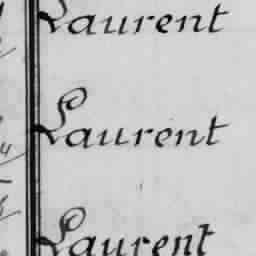 Laurent
Laurent
Laurent